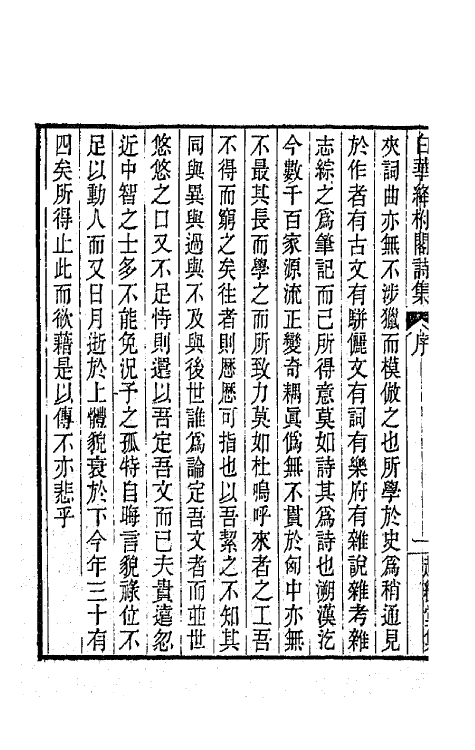 白華絳柎閣詩集 序
夾詞曲亦無不涉獵而模倣之也所學於史爲稍通見
於作者有古文有駢儷文有詞有樂府有雜說雜考雜
志綜之爲筆記而已所得意莫如詩其爲詩也溯漢汔
今數千百家源流正變奇耦眞僞無不貫於匈中亦無
不最其長而學之而所致力莫如杜嗚呼來者之工吾
不得而窮之矣往者則歷歷可指也以吾絜之不知其
同與異與過與不及與後世誰爲論定吾文者而並世
悠悠之口又不足恃則還以吾定吾文而已夫貴遠忽
近中智之士多不能免況予之孤特自晦言貌祿位不
足以動人而又日月逝於上體貌衰於下今年三十有
四矣所得止此而欲藉是以傳不亦悲乎